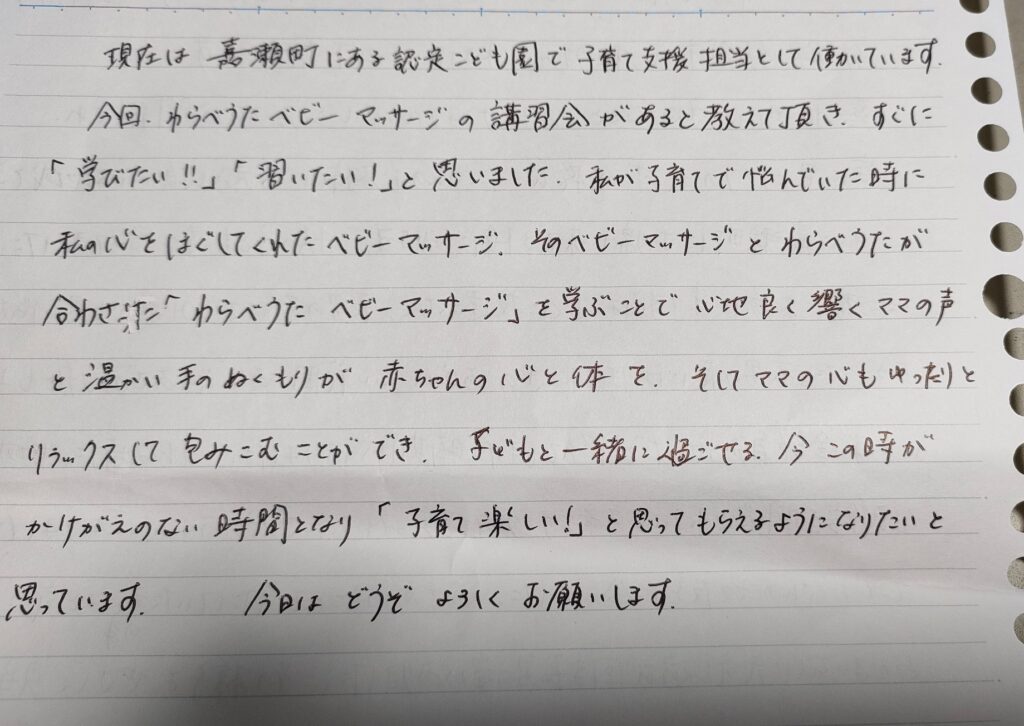 現在は 嘉瀬町にある認定こども園で子育て支援担当として働いています.
今回. わらべうたベビーマッサージの講習会があると教えて頂き. すぐに
「学びたい!!」「習いたい!」と思いました. 私が子育てで悩んでいた時に
私の心をほぐしてくれたベビーマッサージ. そのベビーマッサージとわらべうたが
合わさった「わらべうた ベビーマッサージ」を学ぶことで心地良く響くママの声
と温かい手のぬくもりが 赤ちゃんの心と体を. そしてママの心もゆったりと
リラックスして包みこむことができ. 子どもと一緒に過ごせる. 今この時が
かけがえのない時間となり「子育て楽しい!」と思ってもらえるようになりたいと
思っています. 今日はどうぞよろしくお願いします.